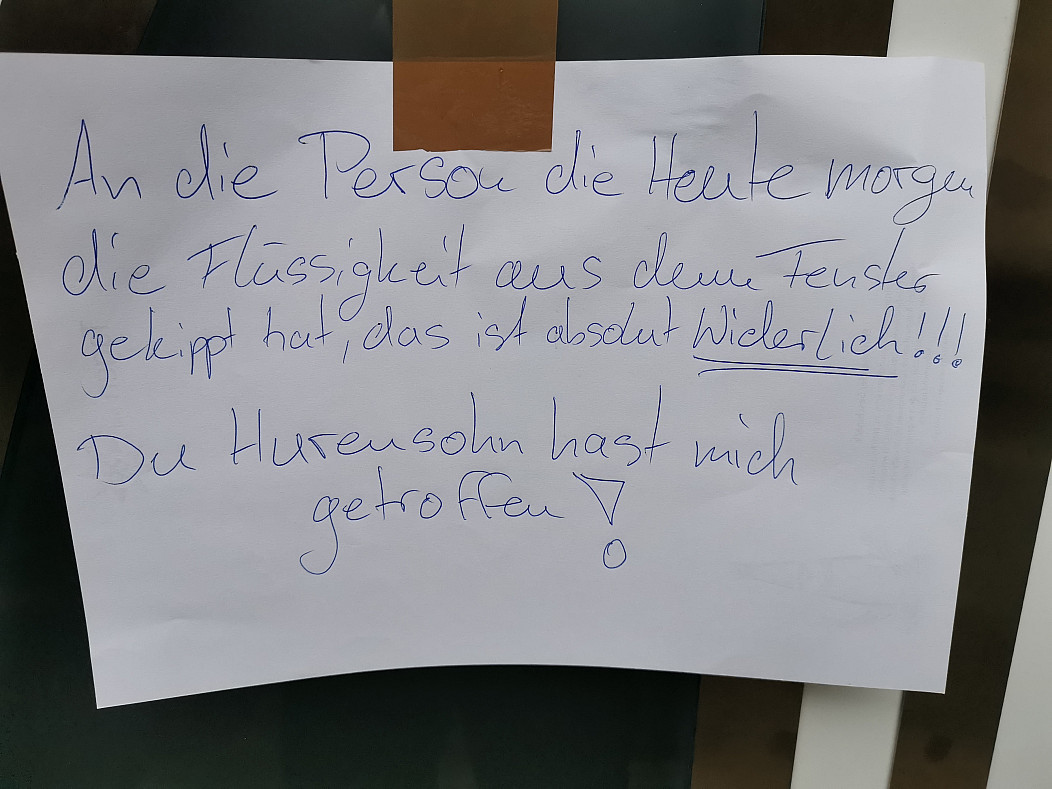 An die Person die Heute morgen
die Flüssigkeit aus dem Fenster
gekippt hat, das ist absolut Widerlich!!!
Du Hurensohn hast mich
getroffen!